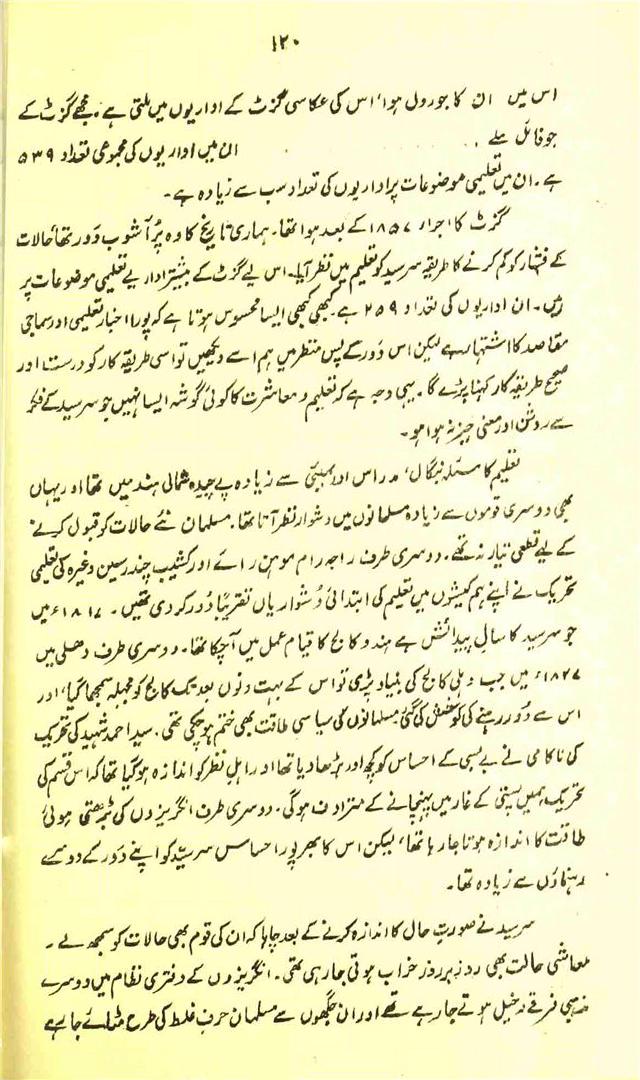 ۱۲۰
اس میں ان کا جو رول ہوا، اس کی عکاسی گزٹ کے اداریوں میں ملتی ہے۔ مجھے گزٹ کے
جو فائل ملے ان میں اداریوں کی مجموعی تعداد ۵۳۹
ہے۔ ان میں تعلیمی موضوعات پر اداریوں کی تعداد سب سے زیادہ ہے۔
گزٹ کا اجراء ۱۸۵۷ کے بعد ہوا تھا۔ ہماری تاریخ کا وہ پُر آشوب دَور تھا۔ حالات
کے فشار کو کم کرنے کا طریقہ سرسید کو تعلیم میں نظر آیا۔ اس لیے گزٹ کے بیشتر اداریے تعلیمی موضوعات پر
ہیں۔ ان اداریوں کی تعداد ۲۵۹ ہے۔ کبھی کبھی ایسا محسوس ہوتا ہے کہ پورا اخبار تعلیمی اور سماجی
مقاصد کا اشتہار ہے لیکن اس دَور کے پس منظر میں ہم اسے دیکھیں تو اسی طریقہ کار کو درست اور
صحیح طریقہ کار کہنا پڑے گا۔ یہی وجہ ہے کہ تعلیم و معاشرت کا کوئی گوشہ ایسا نہیں جو سرسید کے فکر
سے روشن اور معنی خیز نہ ہوا ہو۔
تعلیم کا مسئلہ بنگال، مدراس اور بمبئی سے زیادہ پیچیدہ شمالی ہند میں تھا اور یہاں
بھی دوسری قوموں سے زیادہ مسلمانوں میں دشوار نظر آتا تھا۔ مسلمان نئے حالات کو قبول کرنے
کے لیے قطعی تیار نہ تھے۔ دوسری طرف راجہ رام موہن رائے اور کشیب چندر سین وغیرہ کی تعلیمی
تحریک نے اپنے ہم کیشوں میں تعلیم کی ابتدائی دشواریاں تقریباً دور کر دی تھیں۔ ۱۸۱۷ء میں
جو سرسید کا سالِ پیدائش ہے ہندو کالج کا قیام عمل میں آچکا تھا۔ دوسری طرف دھلی میں
۱۸۲۷ء میں جب دہلی کالج کی بنیاد پڑی تو اس کے بہت دنوں بعد تک کالج کو مجہلہ سمجھا گیا، اور
اس سے دُور رہنے کی کوشش کی گئی۔ مسلمانوں کی سیاسی طاقت بھی ختم ہو چکی تھی۔ سید احمد شہید کی تحریک
کی ناکامی نے بے بسی کے احساس کو کچھ اور بڑھا دیا تھا اور اہلِ نظر کو اندازہ ہو گیا تھا کہ اس قسم کی
تحریک ہمیں پستی کے غار میں پہنچانے کے مترادف ہوگی۔ دوسری طرف انگریزوں کی بڑھتی ہوئی
طاقت کا اندازہ ہوتا جا رہا تھا، لیکن اس کا بھر پور احساس سرسیّد کو اپنے دَور کے دوسرے
رہنماؤں سے زیادہ تھا۔
سرسید نے صورتِ حال کا اندازہ کرنے کے بعد چاہا کہ ان کی قوم بھی حالات کو سمجھ لے۔
معاشی حالت بھی روز بروز خراب ہوتی جا رہی تھی۔ انگریزوں کے دفتری نظام میں دوسرے
مذہبی فرقے دخیل ہوتے جا رہے تھے اور ان جگہوں سے مسلمان حرف غلط کی طرح مٹائے جا رہے